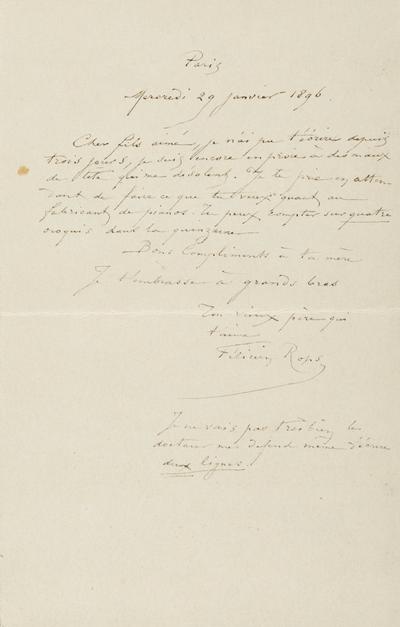 Paris
Mercredi 29 janvier 1896.
Cher fils aimé, je n'ai pu t'écrire depuis
trois jours, je suis encore en proie à des maux
de tête qui me désolent. Je te prie en atten
dant de faire ce que tu veux quant au
fabricant de pianos. Tu peux compter sur quatre
croquis dans la quinzaine.
Bons compliments à ta mère
Je t'embrasse à grands bras
Ton vieux père qui
t'aime
Félicien Rops
Je ne vais pas très bien, le
docteur me défend même d'écrire
deux lignes!